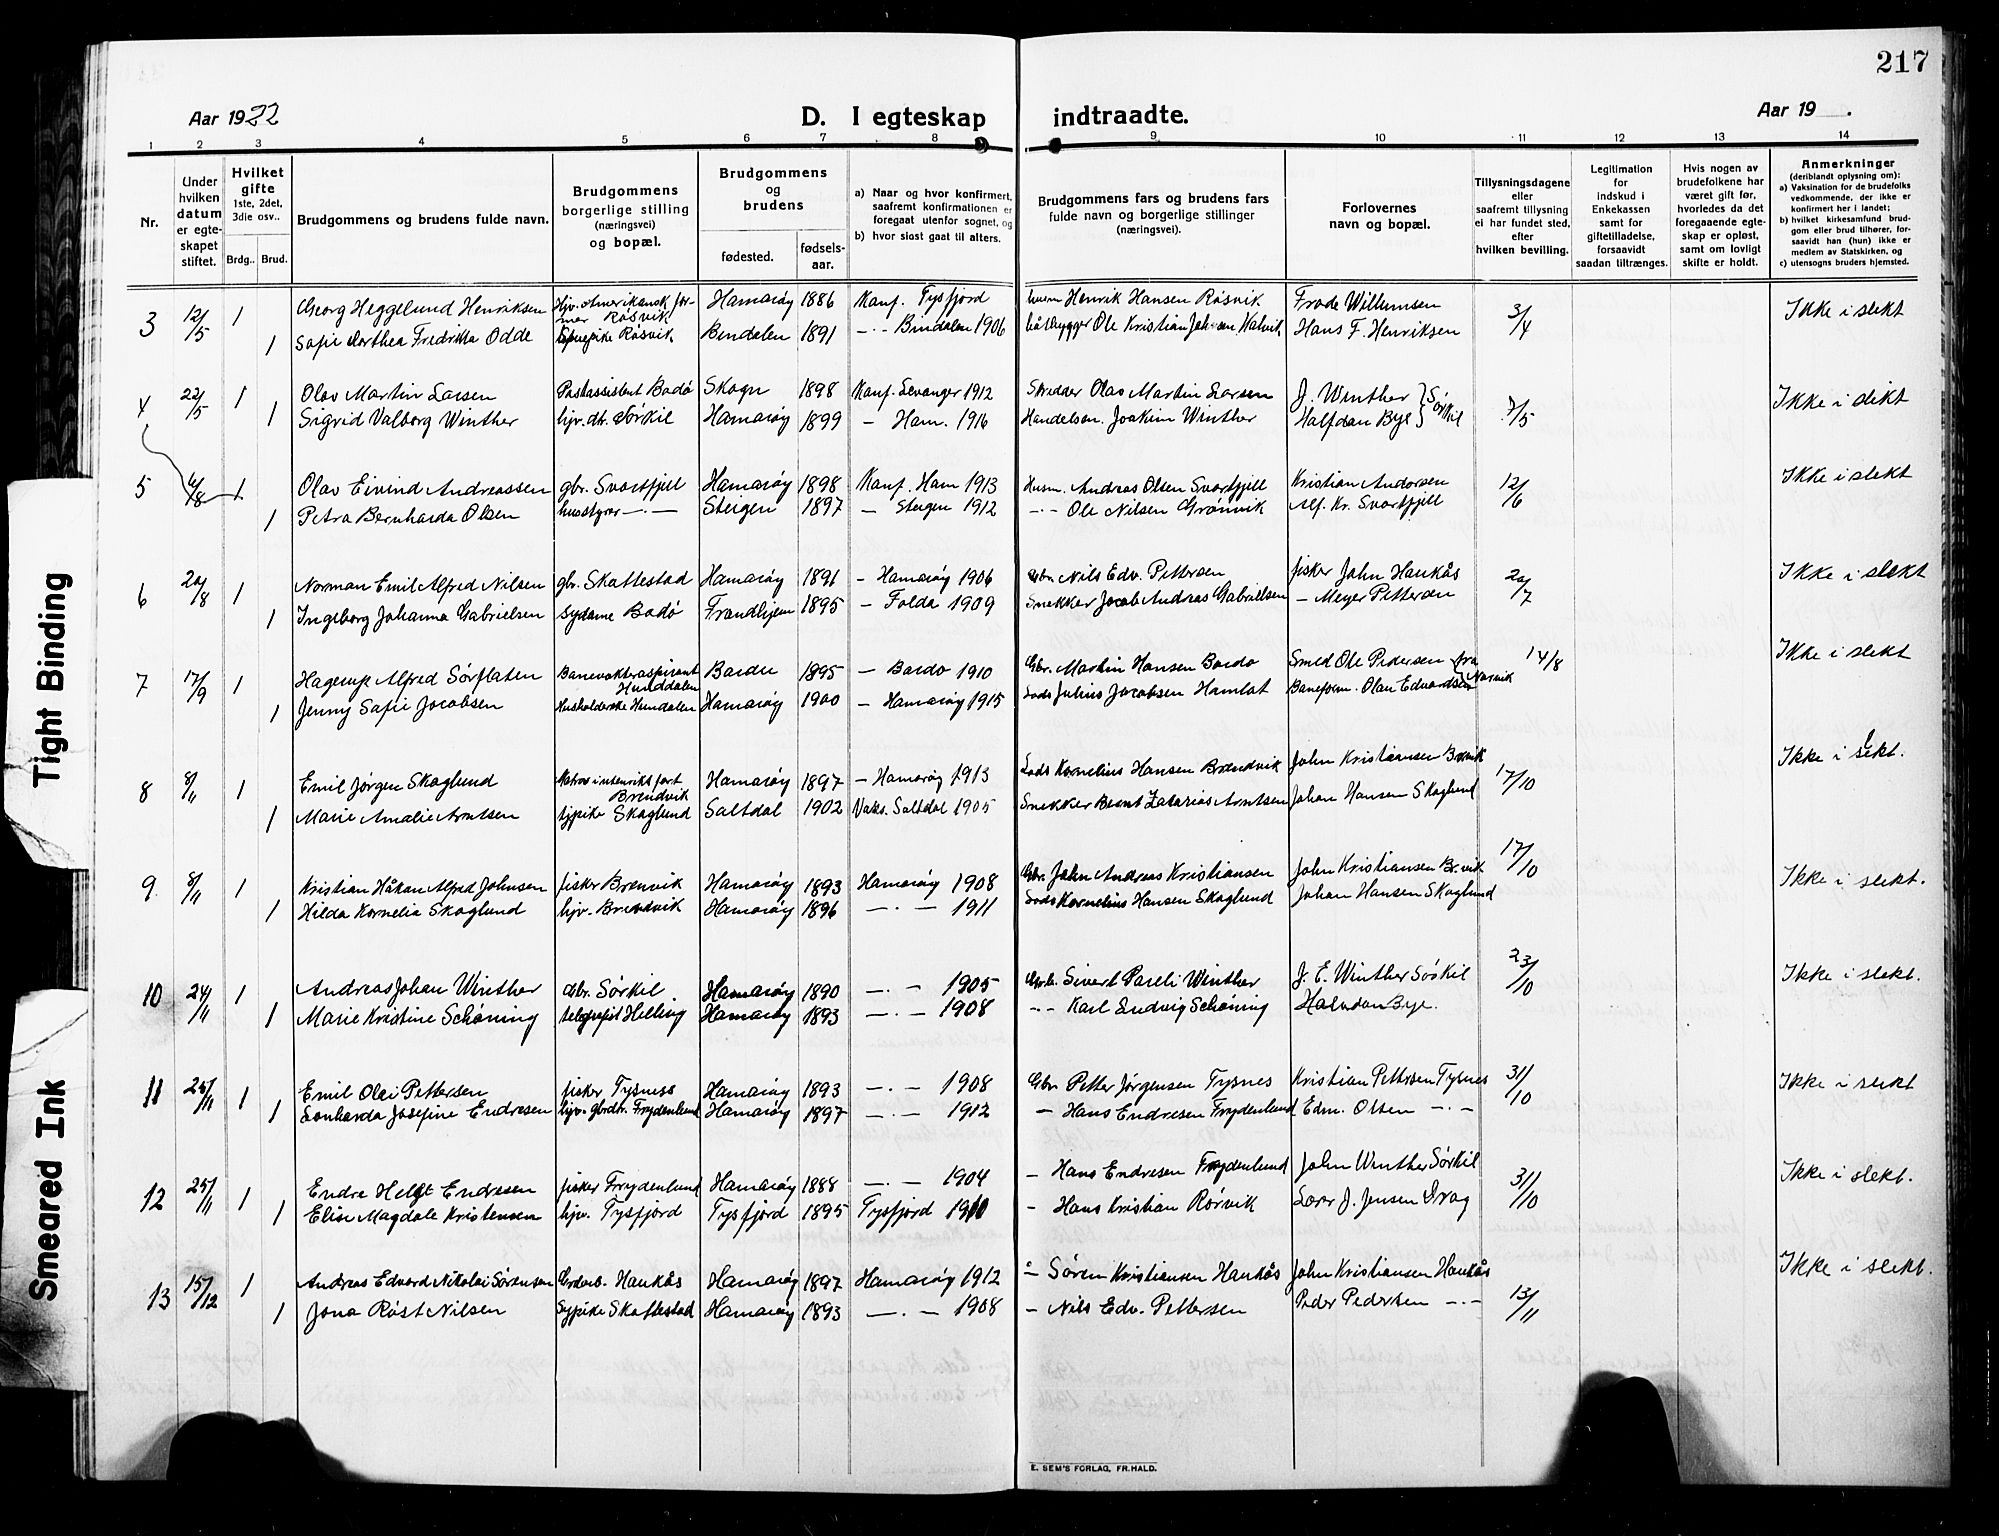 217
Aar 1922
D. I egteskap indtraadte.
Aar 19 .
1 2 3 4 5 6 7 8 9. 10 11 12 13 14
Nr.
Under hvilken datum er egteskapet stiftet.
Hvilket gifte 1ste, 2det, 3die osv..
Brdg.. Brud.
Brudgommens og brudens fulde navn.
Brudgommens borgerlige stilling (næringsvei) og bopæl.
Brudgommens og brudens
fødested.
fødsels-aar.
a) Naar og hvor konfirmert, saafremt konfirmationen er foregaat utenfor sognet, og
b) hvor sidst gaat til alters.
Brudgommens fars og brudens fars fulde navn og borgerlige stillinger (næringsvei).
Forlovernes navn og bopæl.
Tillysningsdagene eller saafremt tillysning ei har fundet sted, efter hvilken bevilling.
Legitimation for indskud i Enkekassen samt for giftetilladelse, forsaavidt saadan tiltrænges.
Hvis nogen av brudefolkene har været gift før, hvorledes da det foregaaende egteskap er opløst, samt om lovligt skifte er holdt.
Anmerkninger (deriblandt oplysning om):
a) Vaksination for de brudefolks vedkommende, der ikke er konfirmert her i landet;
b) hvilket kirkesamfund brudgom eller brud tilhører, forsaavidt han (hun) ikke er medlem av Statskirken, og
c) utensogns bruders hjemsted.
3 12/5 1 Georg Heggelund Henriksen Røsvik Hamarøy 1886 Konf. Tysfjord Henrik Hansen Røsvik Frode Willumsen 3/4 Ikke i slekt
1 Sofie Dorthea Fredrikka Odde Røsvik Bindalen 1891 -"- Bindalen 1906 båtbygger Ole Kristian Johnsen Hans F. Henriksen
4 22/5 1 Olav Martin Larsen Postassistent Bodø Skogn 1898 Konf. Levanger 1912 Skredder Olav Martin Larsen J. Winther } Sørkil 7/5 Ikke i slekt
1 Sigrid Valborg Winther hjv. dtr. Sørkil Hamarøy 1899 - Ham. 1916 Handelsm. Joakim Winther Halfdan Bye
5 6/8 1 Olav Eivind Andreassen gbr. Svartfjell Hamarøy 1898 Konf. Ham 1913 Husm. Andreas Olsen Svartfjell Kristian Andersen 12/6 Ikke i slekt
1 Petra Bernharda Olsen husstyrer -"- Steigen 1897 - Steigen 1912 -"- Ole Nilsen Grønvik Alf. Kr. Svartfjell
6 20/8 1 Norman Emil Alfred Nilsen gbr. Skattestad Hamarøy 1891 - Hamarøy 1906 Gbr. Nils Edv. Pettersen fisker John Haukås 20/7 Ikke i slekt
1 Ingeborg Johanna Gabrielsen sydame Bodø 1895 - Folda 1909 Snekker Jacob Andreas Gabrielsen - Meyer Pettersen
7 17/9 1 Hagerup Alfred Sørflaten Banevokteraspirant Hunddalen Bardu 1895 - Bardo 1910 Gbr. Martin Hansen Bardo Smed Ole Pedersen } fra Narvik 14/8 Ikke i slekt
1 Jenny Sofie Jacobsen Husholderske Hundalen Hamarøy 1900 - Hamarøy 1915 Lods Julius Jacobsen Hamlot Baneform. Olav Edvardsen
8 8/11 1 Emil Jørgen Skoglund Matros i utenriksfart Brendvik Hamarøy 1897 - Hamarøy 1913 Lods Kornelius Hansen Brendvik John Kristiansen 17/10 Ikke i slekt.
1 Marie Amalie Arntsen tjpike Skoglund Saltdal 1902 Vaks. Saltdal 1905 Snekker Bernt Zakarias Arntsen Johan Hansen Skoglund
9 8/11 1 Kristian Håkon Alfred Johnsen fisker Brenvik Hamarøy 1893 Hamarøy 1908 Gbr. John Andreas Kristiansen John Kristiansen Br.vik 17/10 Ikke i slekt.
1 Hilda Kornelia Skoglund hjv. Brendvik Hamarøy 1896 -"- 1911 Lods Kornelius Hansen Skoglund Johan Hansen Skoglund
10 24/11 1 Andreas Johan Winther Gbr. Sørkil. Hamarøy 1890 -"- 1905 Gbr. Sivert Pareli Winther J. E. Winther Sørkil 23/10 Ikke i slekt.
1 Marie Kristine Schøning telegrafist Helling Hamarøy 1893 -"- 1908 -"- Karl Ludvig Schøning Halvdan Bye.
11 25/11 1 Emil Olai Pettersen fisker Tysness Hamarøy 1893 -"- 1908 Gbr Petter Jørgensen Tysnes Kristian Pettersen Tysnes 31/10 Ikke i slekt
1 Leonharda Josefine Endresen hjv. gbrdtr. Frydenlund Hamarøy 1897 -"- 1912 - Hans Endresen Frydenlund Edm. Olsen -"-
12 25/11 1 Endre Helgt Endresen fisker Frydenlund Hamarøy 1888 -"- 1904 - Hans Endresen Frydenlund John Winther Sørkil 31/10 Ikke i slekt.
1 Elise Magdale Kristensen hjv. Tysfjord Tysfjord 1895 Tysfjord 1910 - Hans Kristian Rørvik Lærer J. Jensen
13 15/12 1 Andreas Edvard Nikolai Sørensen Haukås Hamarøy 1897 Hamarøy 1912 - Søren Kristiansen Haukås John Kristiansen Haukås 13/11 Ikke i slekt.
1 Jona Røst Nilsen Sypike Skattestad Hamarøy 1893 -"- 1908 - Nils Edv. Pettersen Peder Pedersen -"-
E. SEM'S FORLAG, FR.HALD.
Tight Binding
Smeared Ink